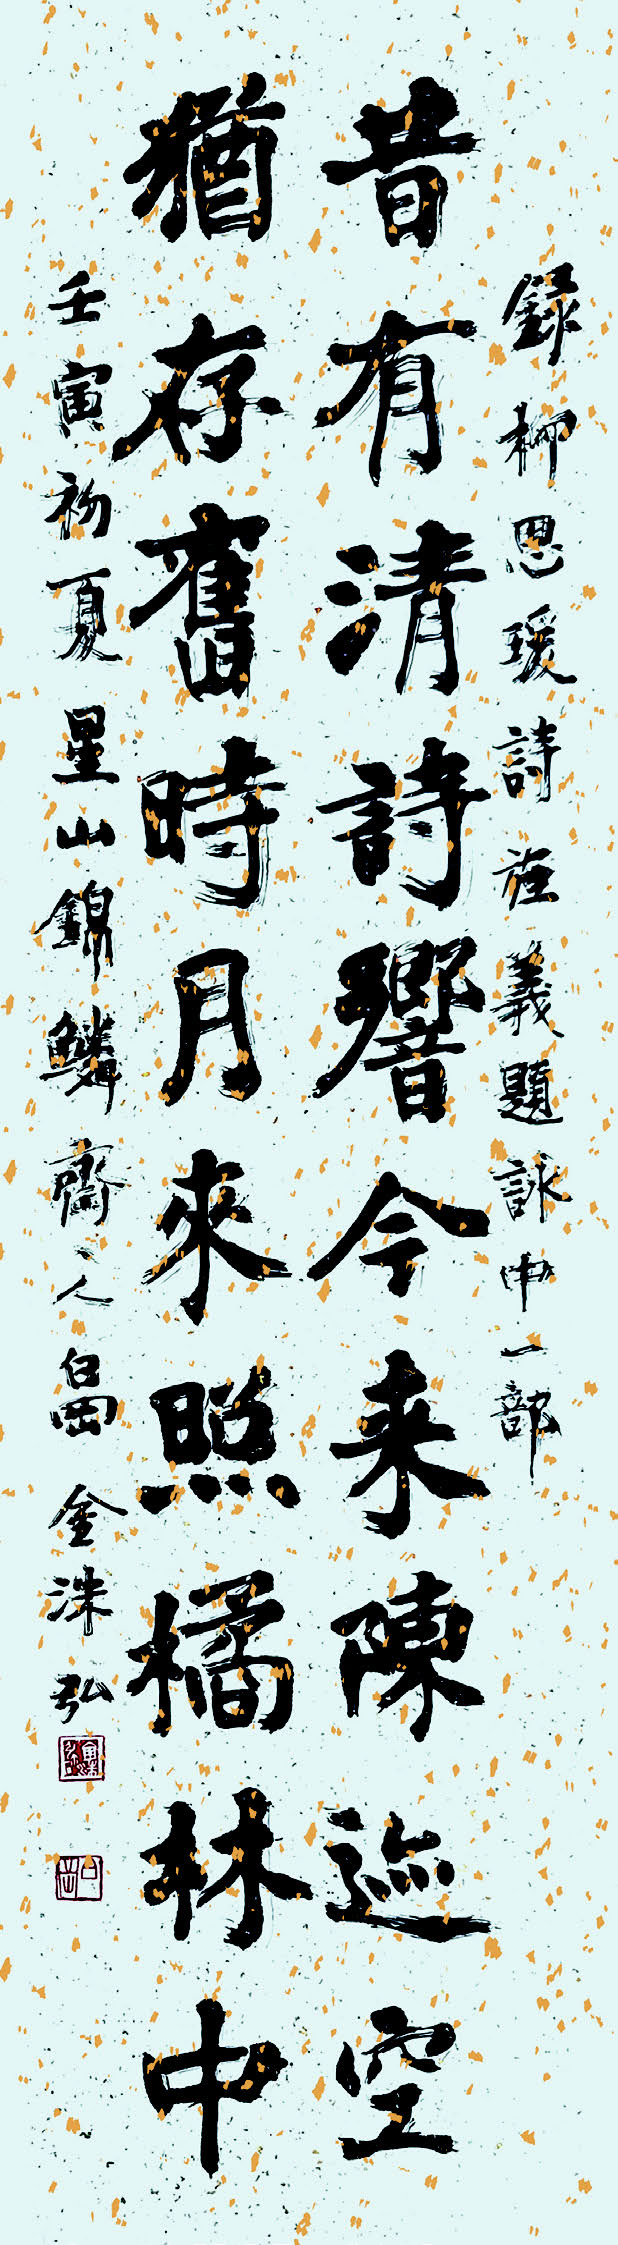 録柳思瑗詩旌義題詠中一部
昔有清詩響今来陳迹空
猶存舊時月來照橘林中
壬寅初夏星山錦鱗齋々人 金洙弘